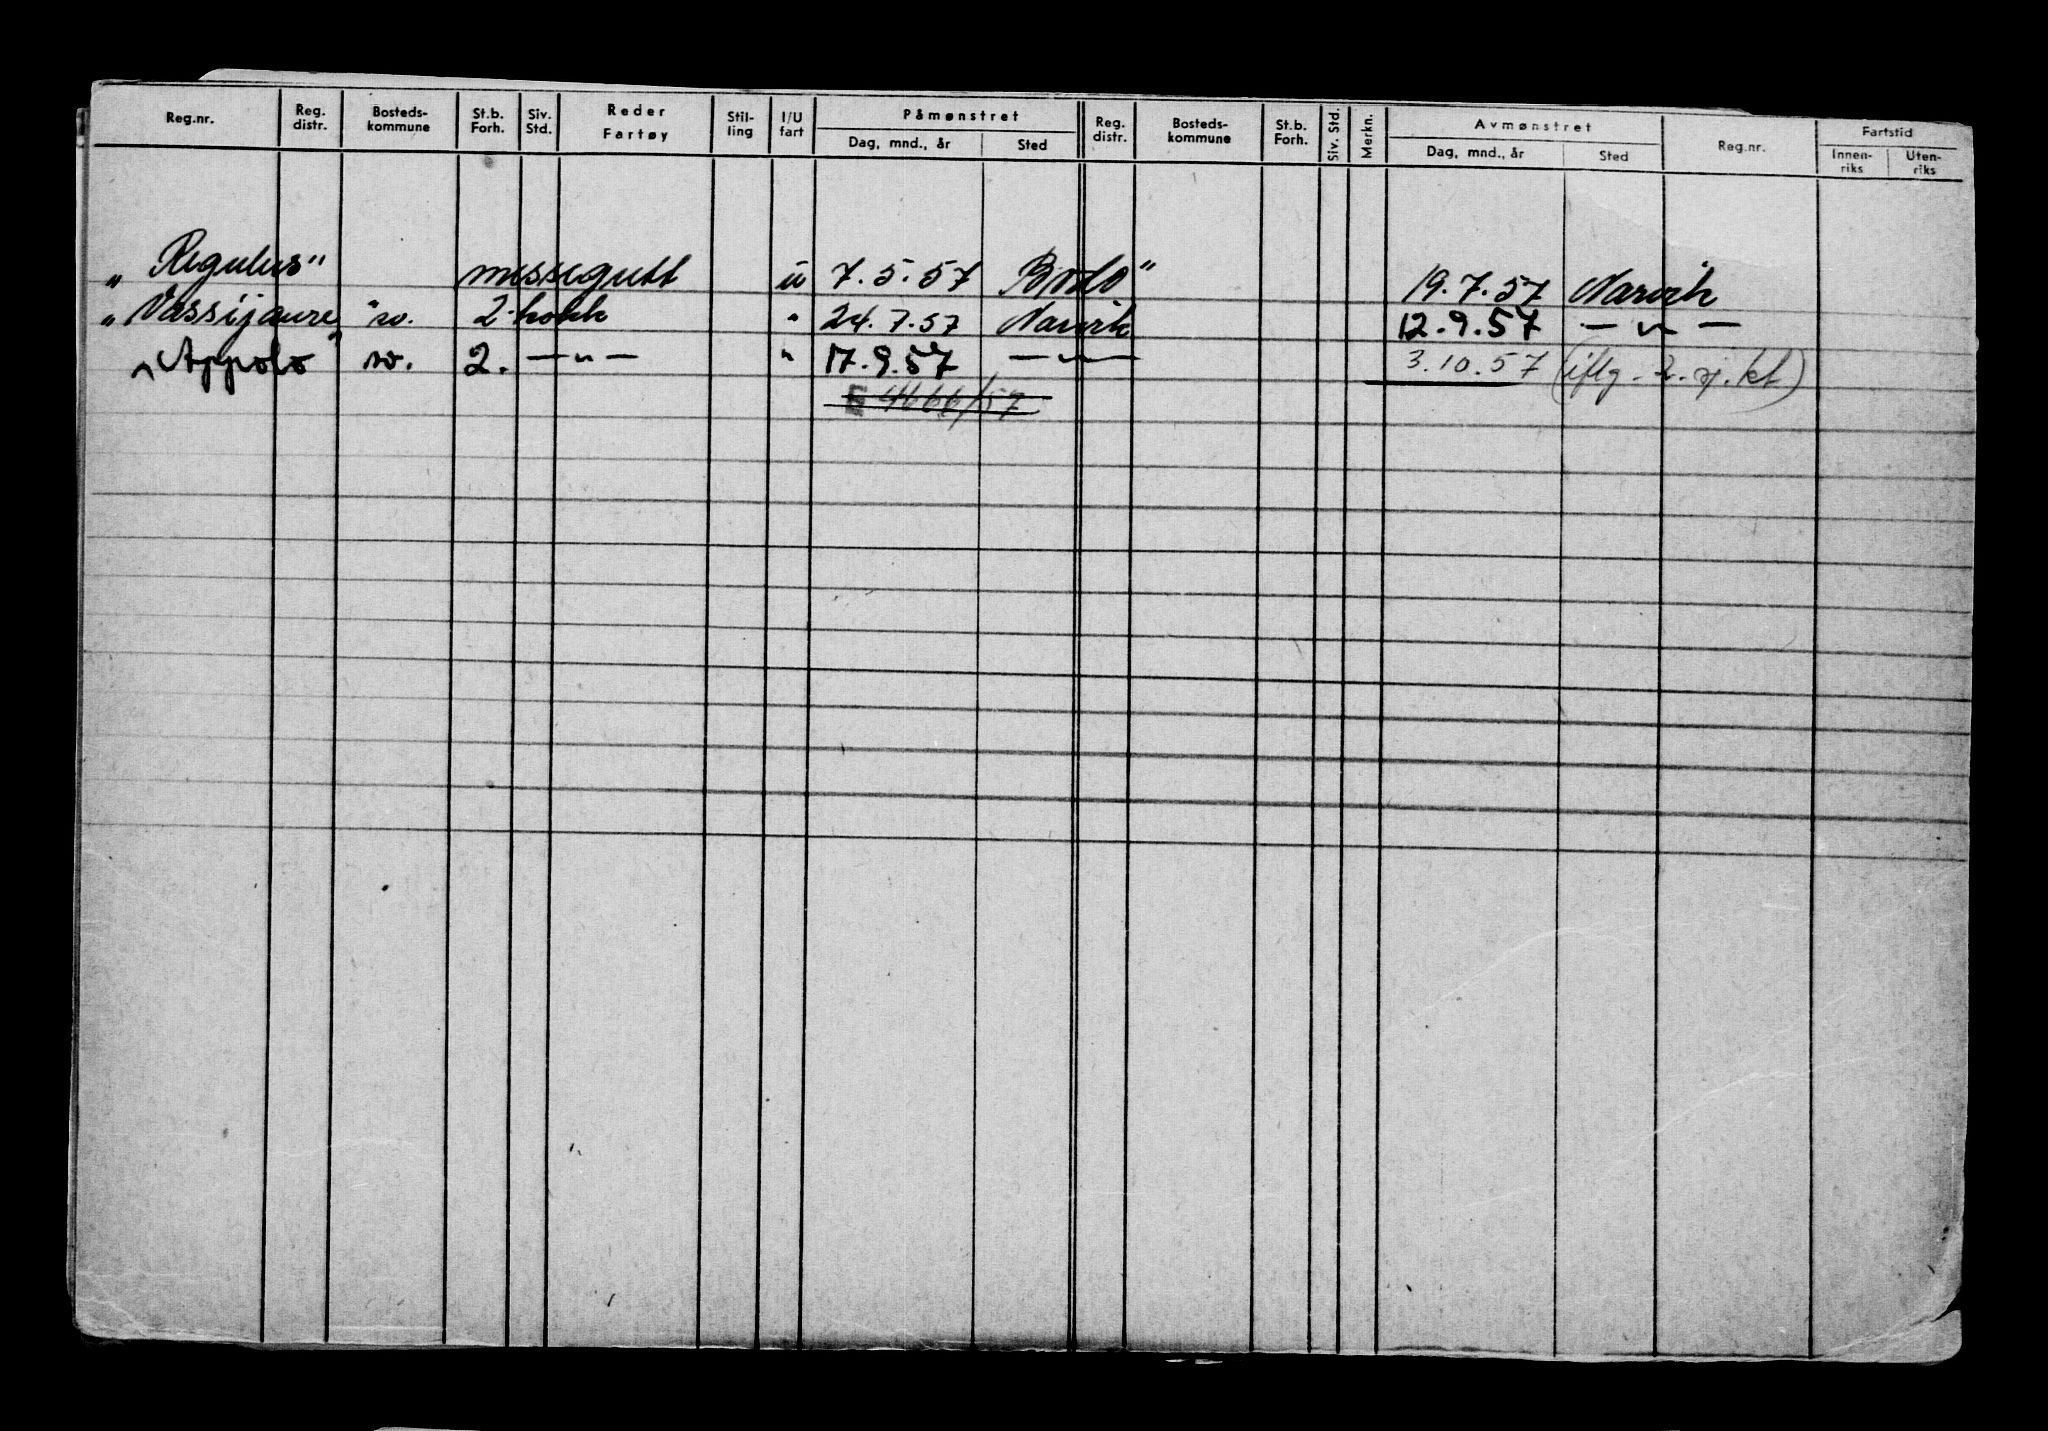 Reg.nr. Reg. distr. Bosteds- kommune St.b. Forh. Siv. Std. Reder Fartøy Stil- ling I/U fart Påmønstret Dag, mnd., år Sted Reg. distr. Bosteds- kommune St.b. Forh. Siv. Std. Merkn. Avmønstret Dag, mnd., år Sted Reg.nr. Fartstid Innen- riks Uten- riks
„Regulus" messegutt u 7.5.57 Bodø" 19.7.57 Narvik
„Vassijaure" sv. 2. kokk " 24.7.57 Narvik 12.9.57 — " —
„Appolo" sv. 2. — " — " 17.9.57 — " — 3.10.57 (iflg. 2. sj. kt)
E 4666/57